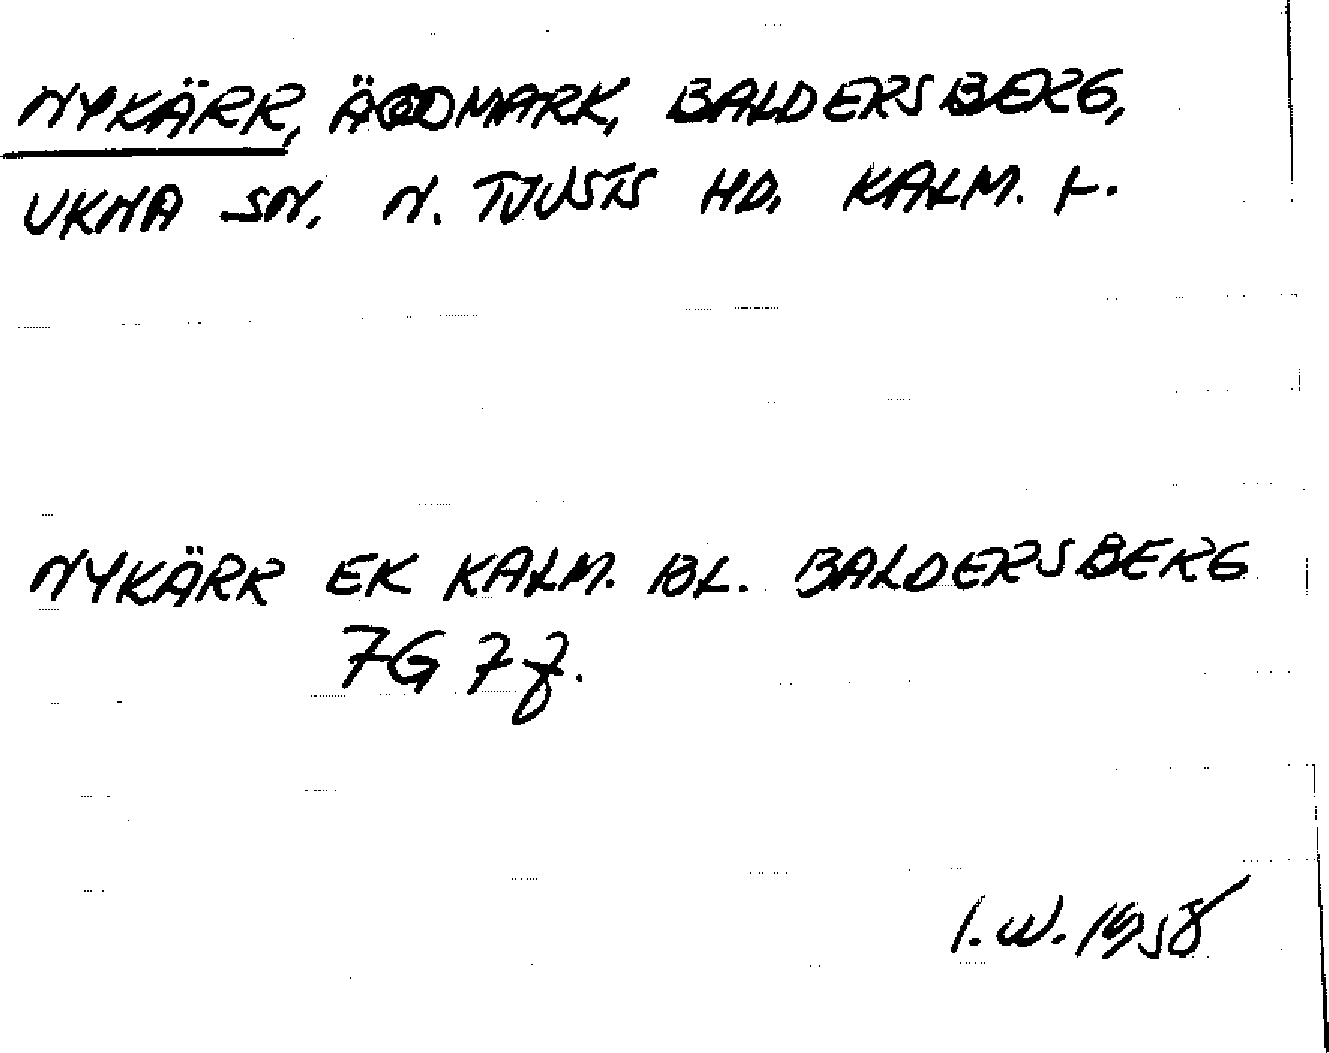 NYKÄRR, ÄGOMARK, BALDERSBERG,
UKNA SN. N. TJUSTS HD, KALM. L.
NYKÄRR EK KALM. BL. BALDERSBERG
7G 7f.
I.W. 1958